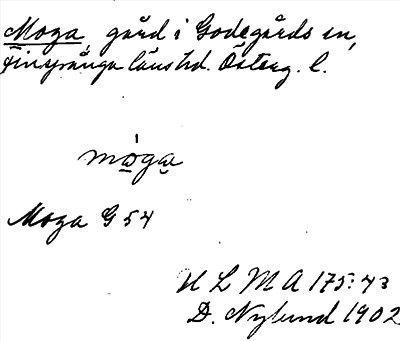 Moga, gård i Godegårds sn,
Finspånga läns hd. Österg. l.
mo̠ga̮
Moga G 54
U L M A 175:43
D. Nylund 1902